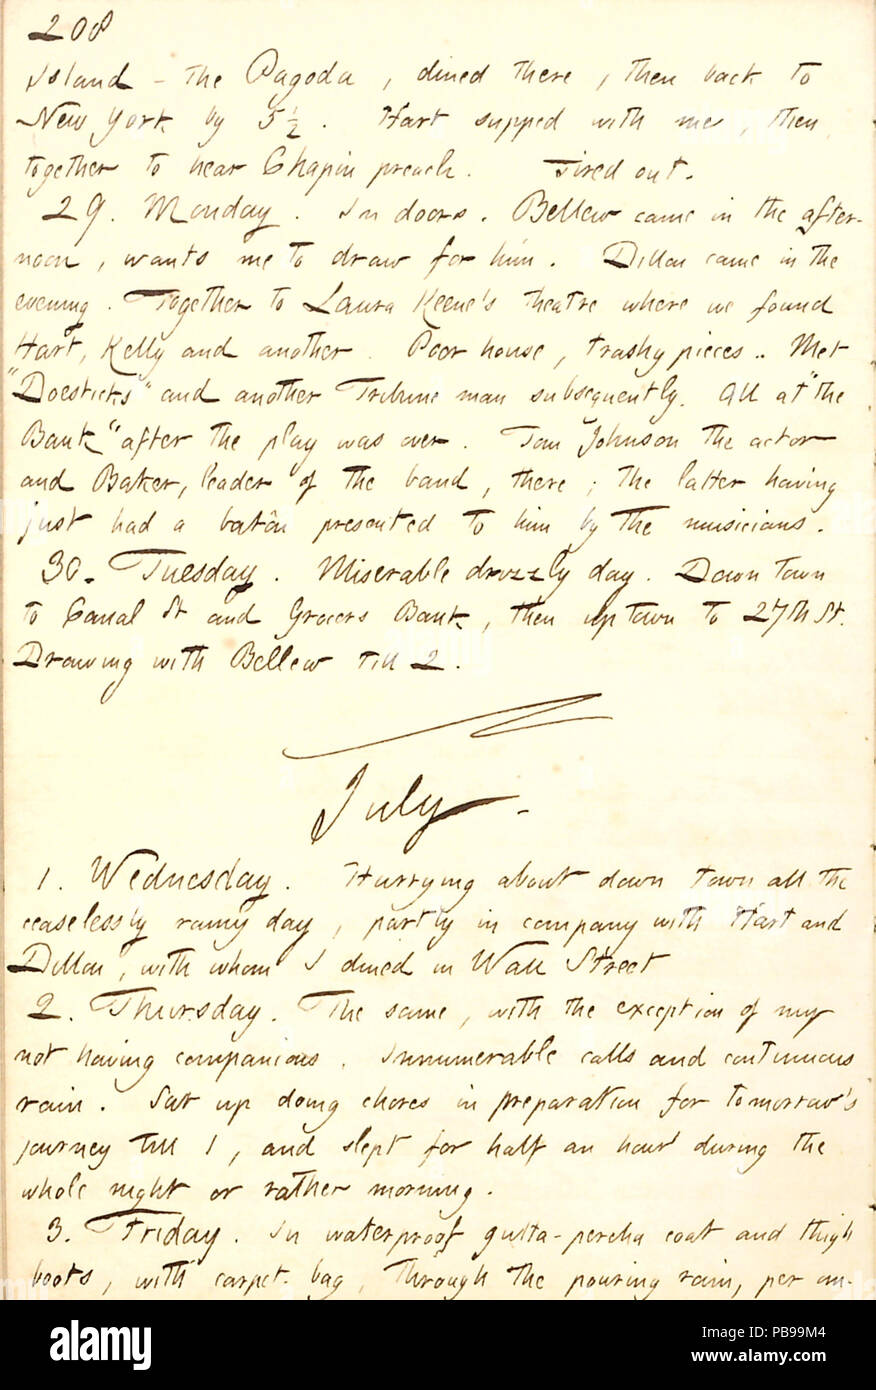 208
Island - the Pagoda, dined there, then back to
New York by 5 ½. Hart supped with me, then
together to hear Chapin preach. Tired out.
29. Monday. In doors. Bellew came in the after-
noon, wants me to draw for him. Dillon came in the
evening. Together to Laura Keene's theatre where we found
Hart, Kelly and another. Poor house, trashy pieces.. Met
"Doesticks" and another Tribune man subsequently. All at "the
Bank" after the play was over. Tom Johnson the actor
and Baker, leader of the band, there; the latter having
just had a batôn presented to him by the musicians.
30. Tuesday. Miserable drizzly day. Down town
to Canal St and Grocers Bank, then up town to 27th St.
Drawing with Bellew till 2.
July.
1. Wednesday. Hurrying about down town all the
ceaselessly rainy day, partly in company with Hart and
Dillon, with whom I dined in Wall Street
2. Thursday. The same, with the exception of my
not having companions. Innumerable calls and continuous
rain. Sat up doing chores in preparation for tomorrow's
journey till 1, and slept for half an hour during the
whole night or rather morning.
3. Friday. In waterproof gutta-percha coat and thigh
boots, with carpet-bag, through the pouring rain, per om-
alamy
PB99M4
www.alamy.com